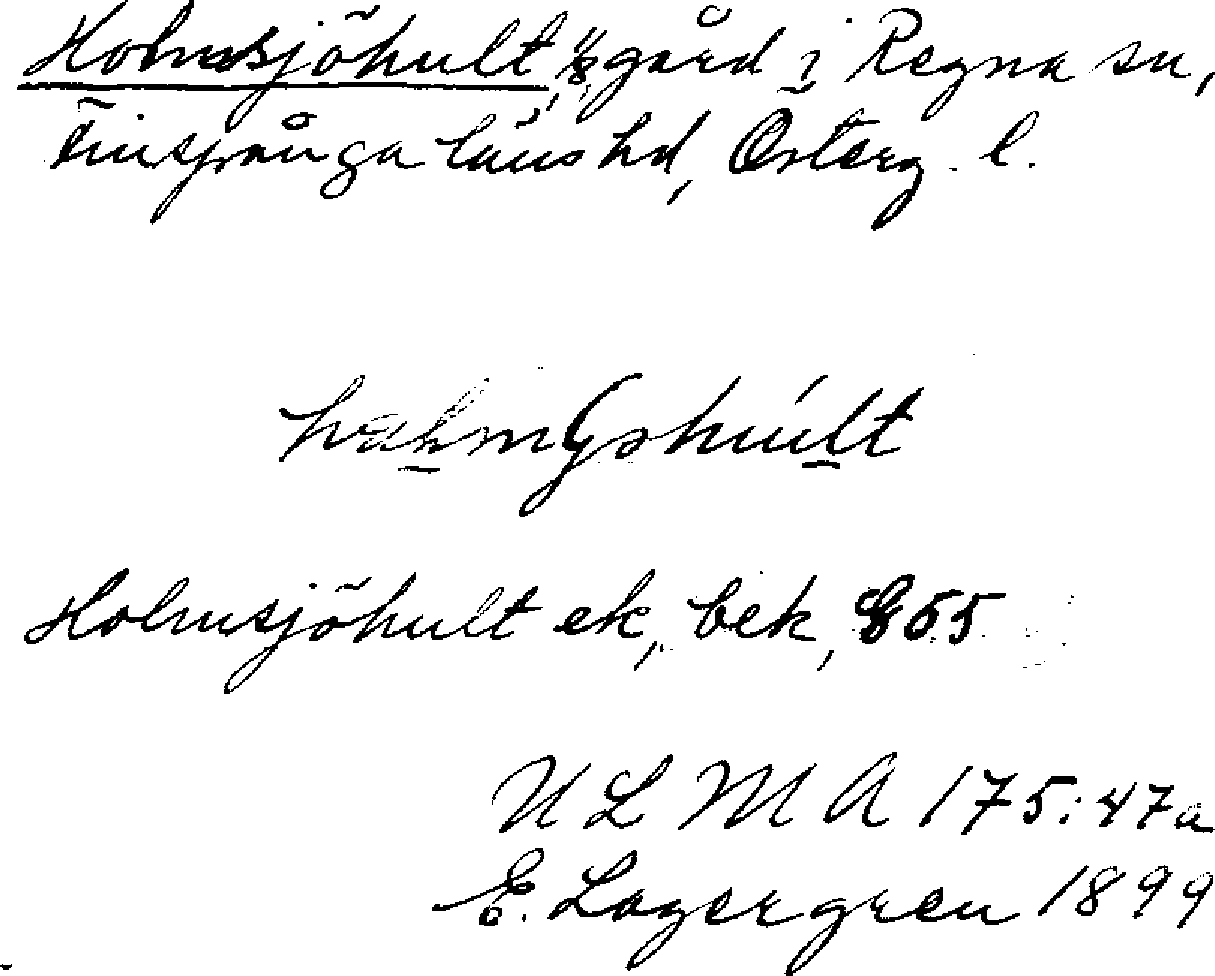 Holmsjöhult, gård i Regna sn,
Finspånga läns hd, Österg. l.
Holmsjöhult ek, bek, 855
U L M A 175:47a
E. Lagergren 1899